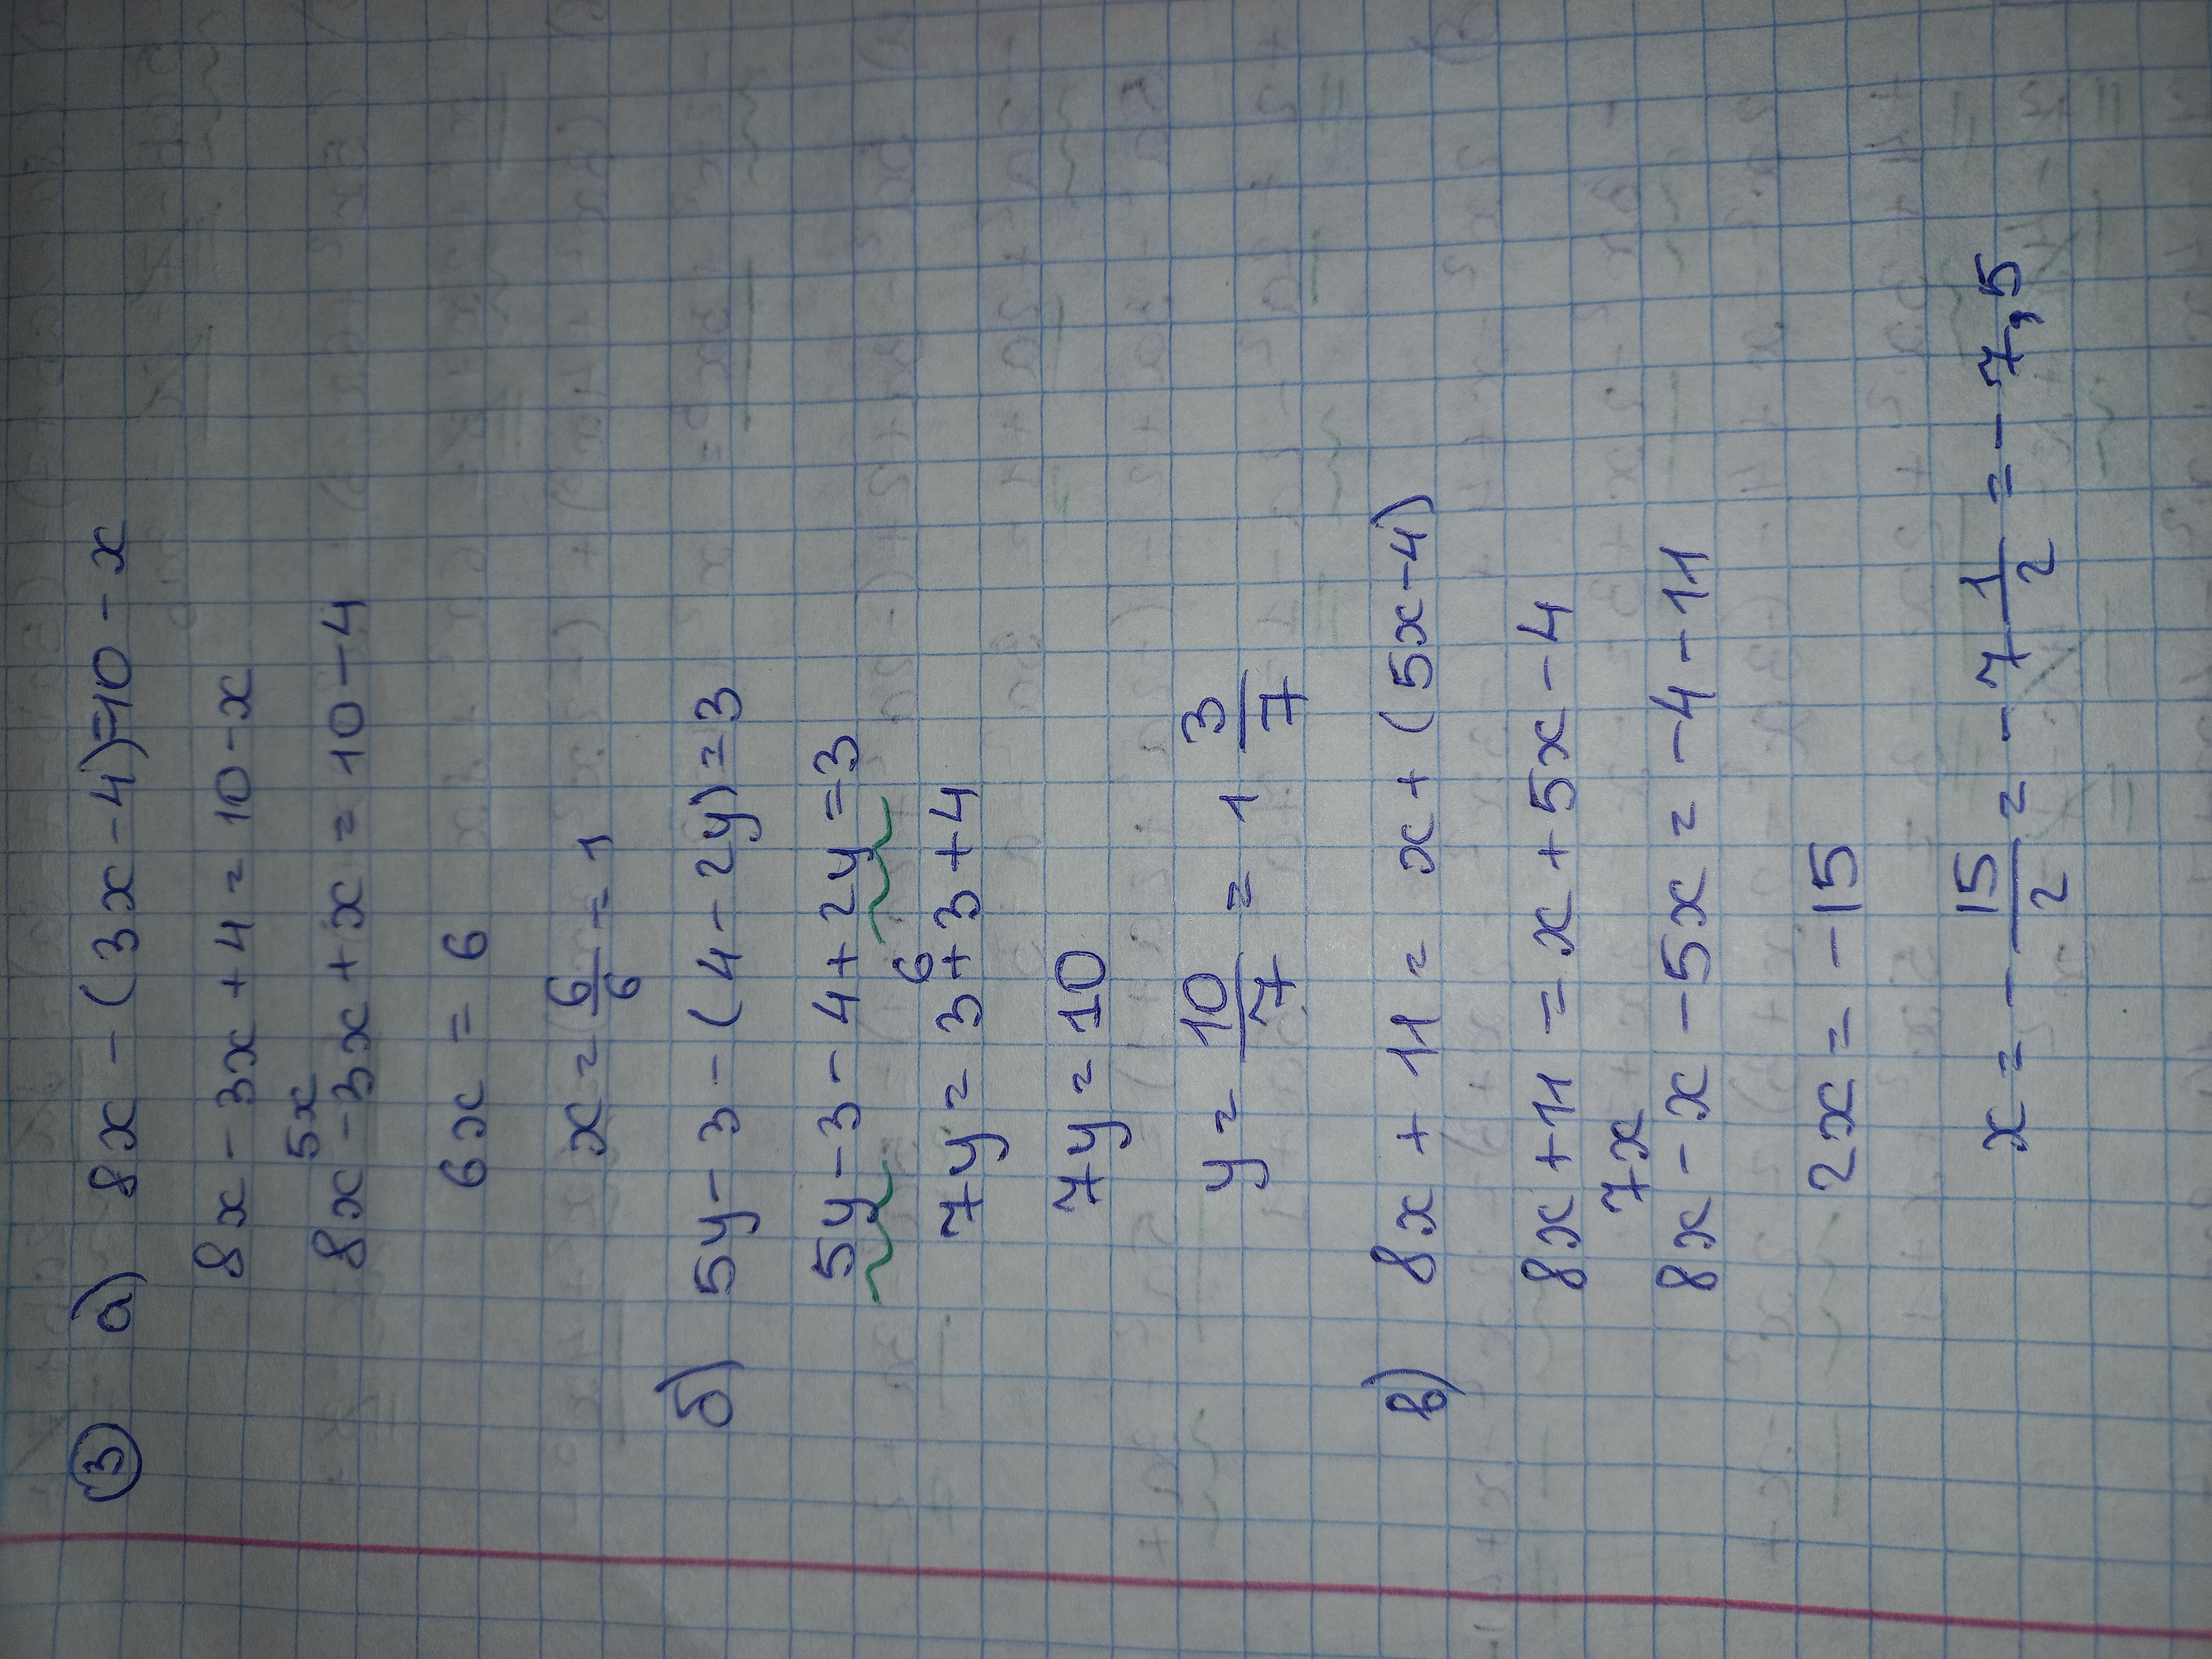 3 а) 8x - (3x - 4) = 10 - x
8x - 3x + 4 = 10 - x
5x
8x - 3x + x = 10 - 4
6x = 6
x = 6/6 = 1
б) 5y - 3 - (4 - 2y) = 3
5y - 3 - 4 + 2y = 3
6
7y = 3 + 3 + 4
7y = 10
y = 10/7 = 1 3/7
в) 8x + 11 = x + (5x - 4)
8x + 11 = x + 5x - 4
7x
8x - x - 5x = -4 - 11
2x = -15
x = - 15/2 = - 7 1/2 = - 7,5